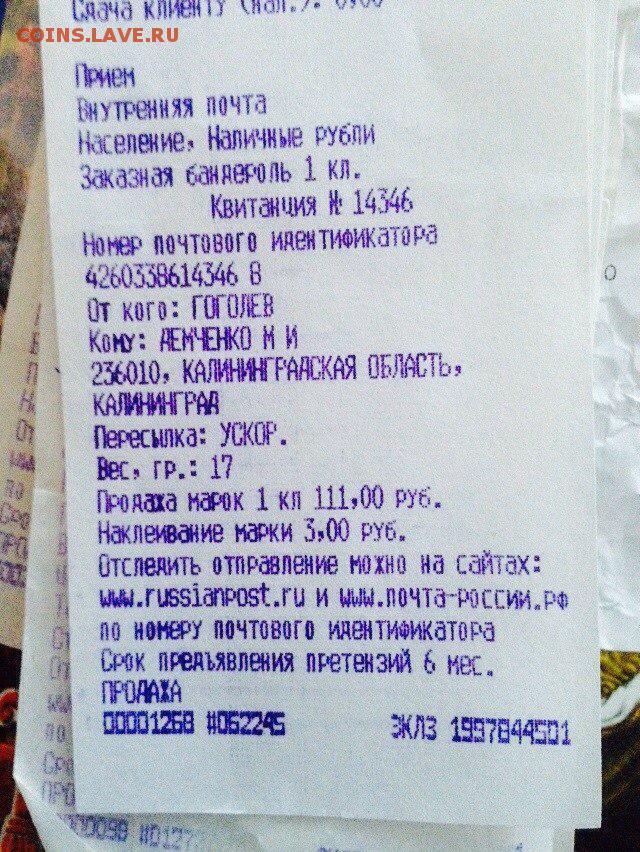 COINS.LAVE.RU
Сдача клиенту (нал.): 0,00
Прием
Внутренняя почта
Население, Наличные рубли
Заказная бандероль 1 кл.
Квитанция № 14346
Номер почтового идентификатора
4260338614346 8
От кого: ГОГОЛЕВ
Кому: ДЕМЧЕНКО М И
236010, КАЛИНИНГРАДСКАЯ ОБЛАСТЬ,
КАЛИНИНГРАД
Пересылка: УСКОР.
Вес, гр.: 17
Продажа марок 1 кл 111,00 руб.
Наклеивание марки 3,00 руб.
Отследить отправление можно на сайтах:
www.russianpost.ru и www.почта-россии.рф
по номеру почтового идентификатора
Срок предъявления претензий 6 мес.
ПРОДАЖА
00001268 #062245 ЭКЛЗ 1997844501